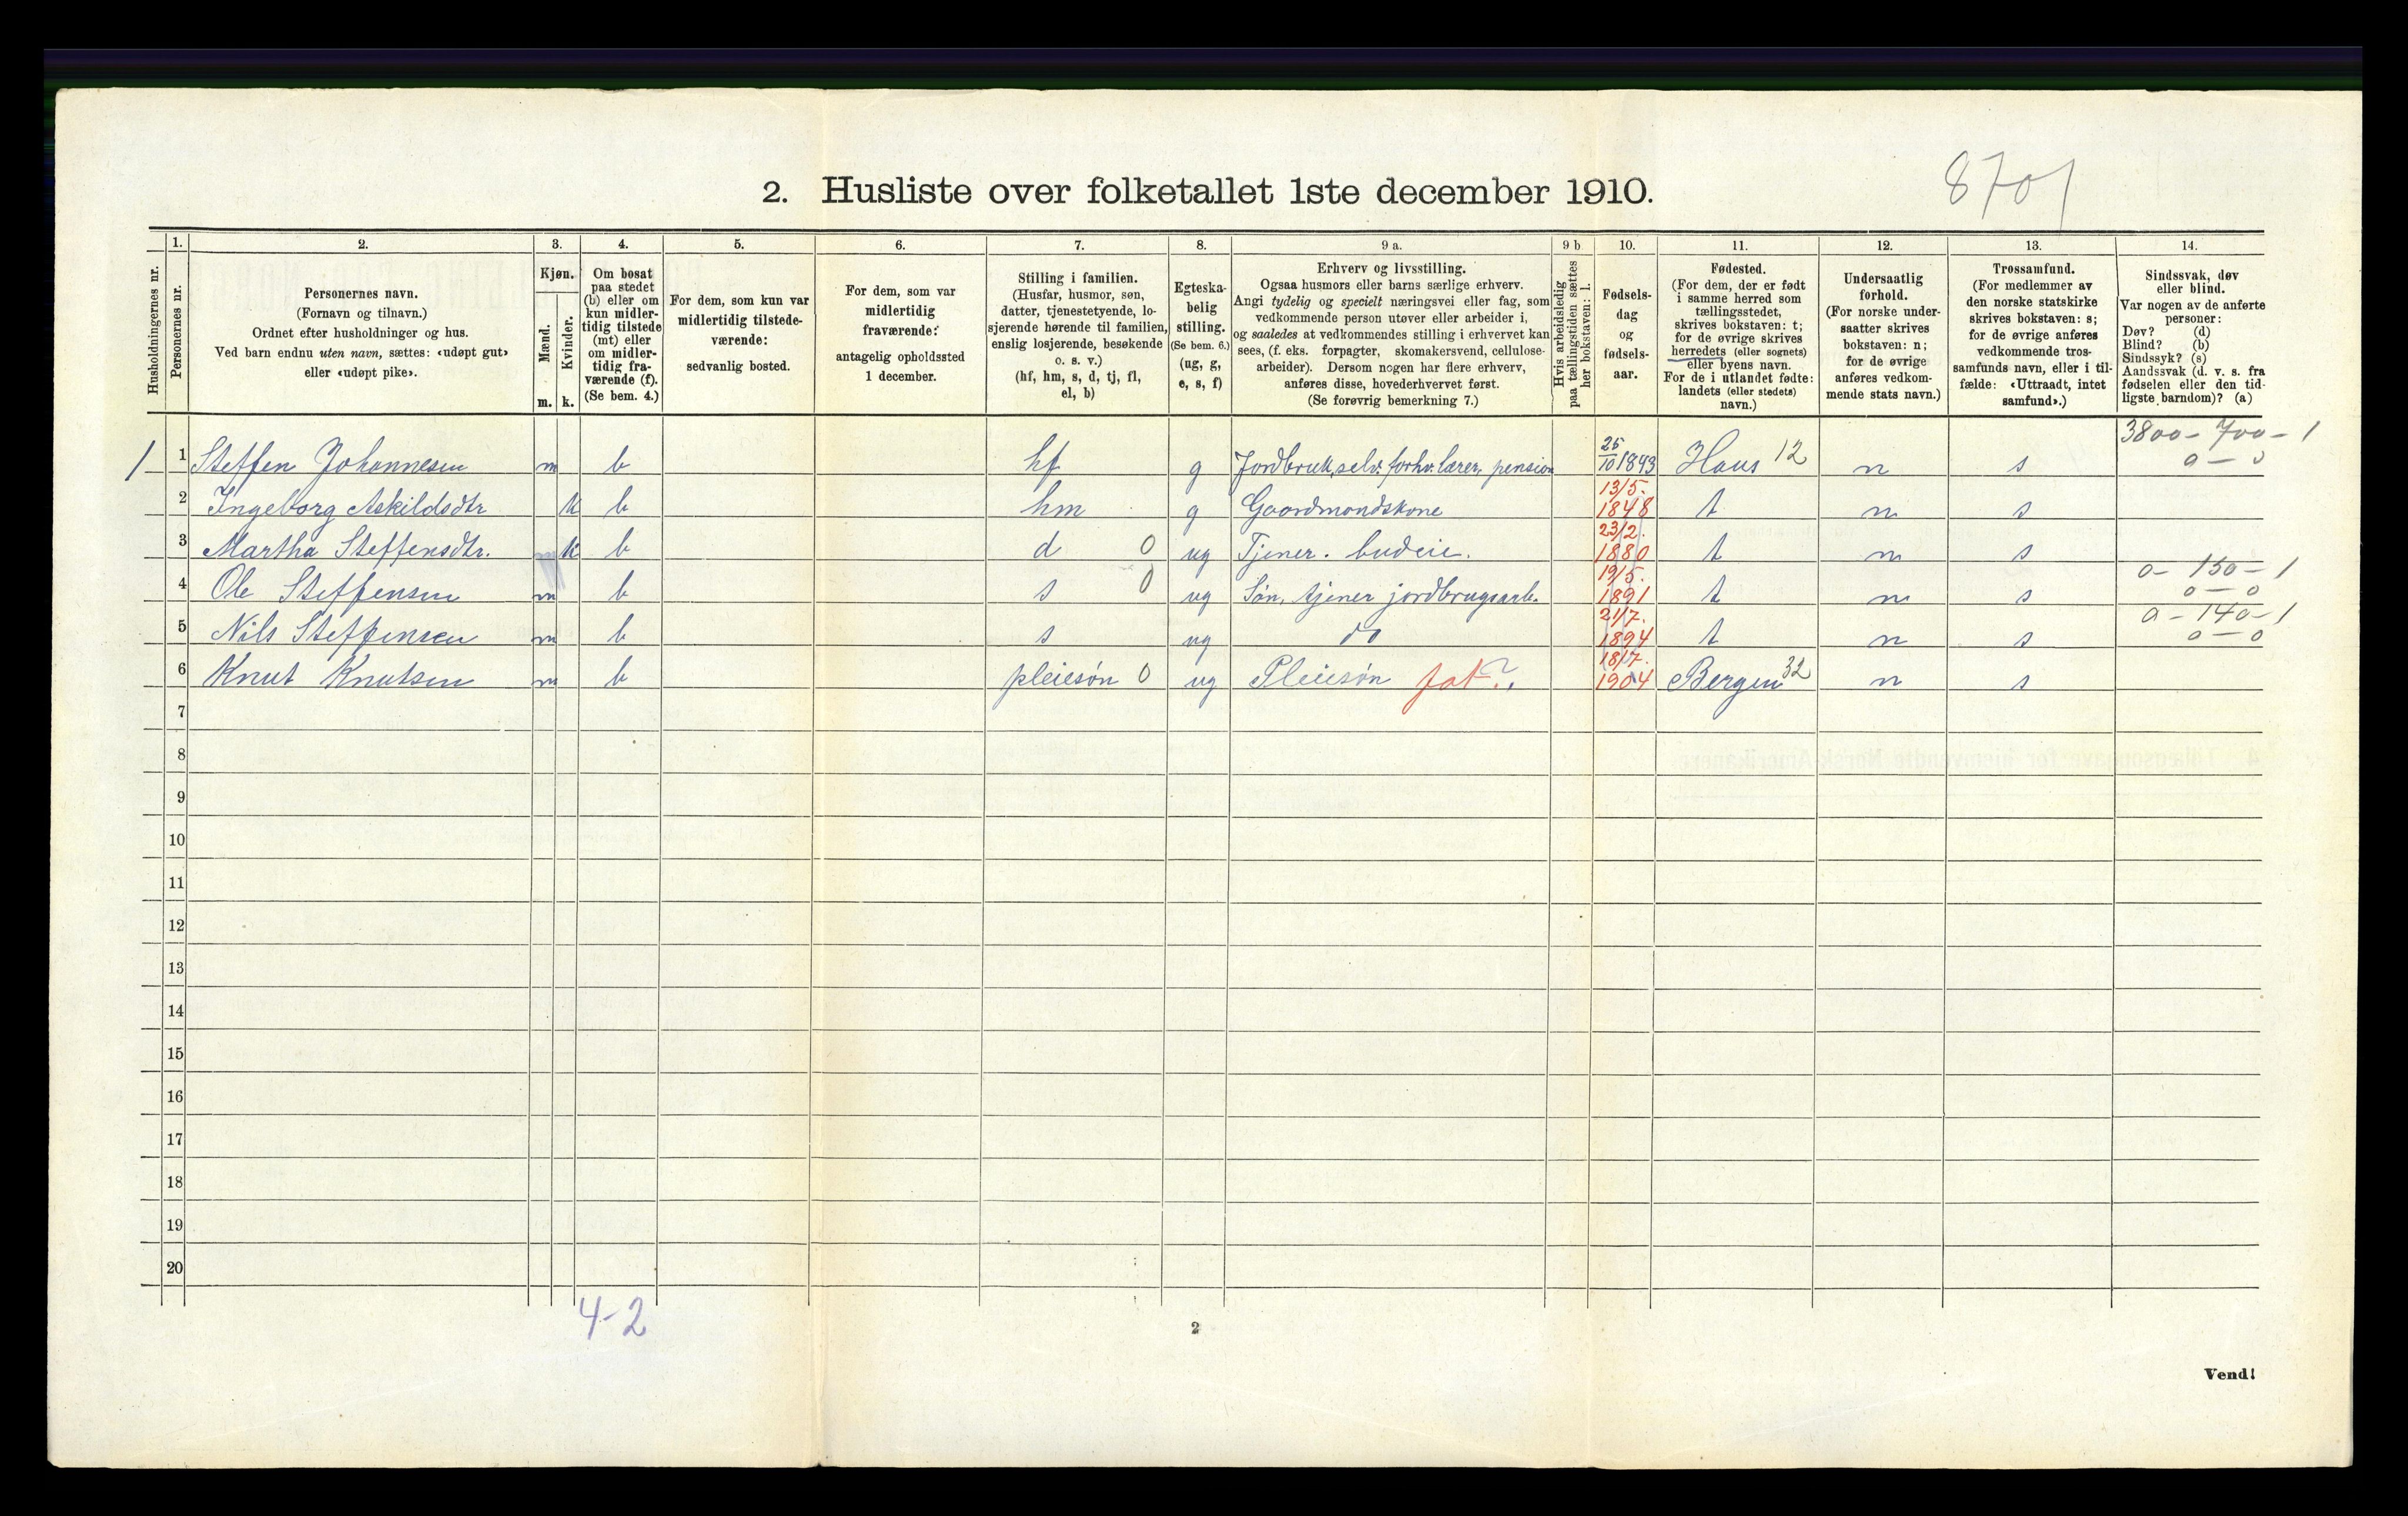 8701
2. Husliste over folketallet 1ste december 1910.
Husholdningernes nr.
1. Personernes nr.
2. Personernes navn. (Fornavn og tilnavn.) Ordnet efter husholdninger og hus. Ved barn endnu uten navn, sættes: «udøpt gut» eller «udøpt pike».
3. Kjøn. Mænd. m. Kvinder. k.
4. Om bosat paa stedet (b) eller om kun midlertidig tilstede (mt) eller om midlertidig fraværende (f). (Se bem. 4.)
5. For dem, som kun var midlertidig tilstedeværende: sedvanlig bosted.
6. For dem, som var midlertidig fraværende: antagelig opholdssted 1 december.
7. Stilling i familien. (Husfar, husmor, søn, datter, tjenestetyende, losjerende hørende til familien, enslig losjerende, besøkende o. s. v.) (hf, hm, s, d, tj, fl, el, b)
8. Egteskabelig stilling. (Se bem. 6.) (ug, g, e, s, f)
9 a. Erhverv og livsstilling. Ogsaa husmors eller barns særlige erhverv. Angi tydelig og specielt næringsvei eller fag, som vedkommende person utøver eller arbeider i, og saaledes at vedkommendes stilling i erhvervet kan sees, (f. eks. forpagter, skomakersvend, cellulosearbeider). Dersom nogen har flere erhverv, anføres disse, hovederhvervet først. (Se forøvrig bemerkning 7.)
9 b Hvis arbeidsledig paa tællingstiden sættes her bokstaven: l.
10. Fødselsdag og fødselsaar.
11. Fødested. (For dem, der er født i samme herred som tællingsstedet, skrives bokstaven: t; for de øvrige skrives herredets (eller sognets) eller byens navn. For de i utlandet fødte: landets (eller stedets) navn.)
12. Undersaatlig forhold. (For norske undersaatter skrives bokstaven: n; for de øvrige anføres vedkommende stats navn.)
13. Trossamfund. (For medlemmer av den norske statskirke skrives bokstaven: s; for de øvrige anføres vedkommende trossamfunds navn, eller i tilfælde: «Uttraadt, intet samfund».)
14. Sindssvak, døv eller blind. Var nogen av de anførte personer: Døv? (d) Blind? (b) Sindssyk? (s) Aandssvak (d. v. s. fra fødselen eller den tidligste barndom)? (a)
3800 - 700 - 1
1 1 Steffen Johannesen m b hf g Jordbruk, selv. forhv. lærer, pension 25/10 1843 Haus 12 n s 0 - 0
2 Ingeborg Askildsdtr k b hm g Gaardmandskone 13/5. 1848 t n s
3 Martha Steffensdtr. k b d 0 ug Tjener. budeie. 23/2. 1880 t n s
0 - 150 - 1
4 Ole Steffensen m b s 0 ug Søn, tjener jordbrugsarb. 19/5. 1891 t n s 0 - 0
0 - 140 - 1
5 Nils Steffensen m b s ug do 21/7. 1894 t n s 0 - 0
6 Knut Knutsen m b pleiesøn 0 ug Pleiesøn fat?. 18/7. 1904 Bergen 32 n s
7
8
9
10
11
12
13
14
15
16
17
18
19
20
4-2
2
Vend!